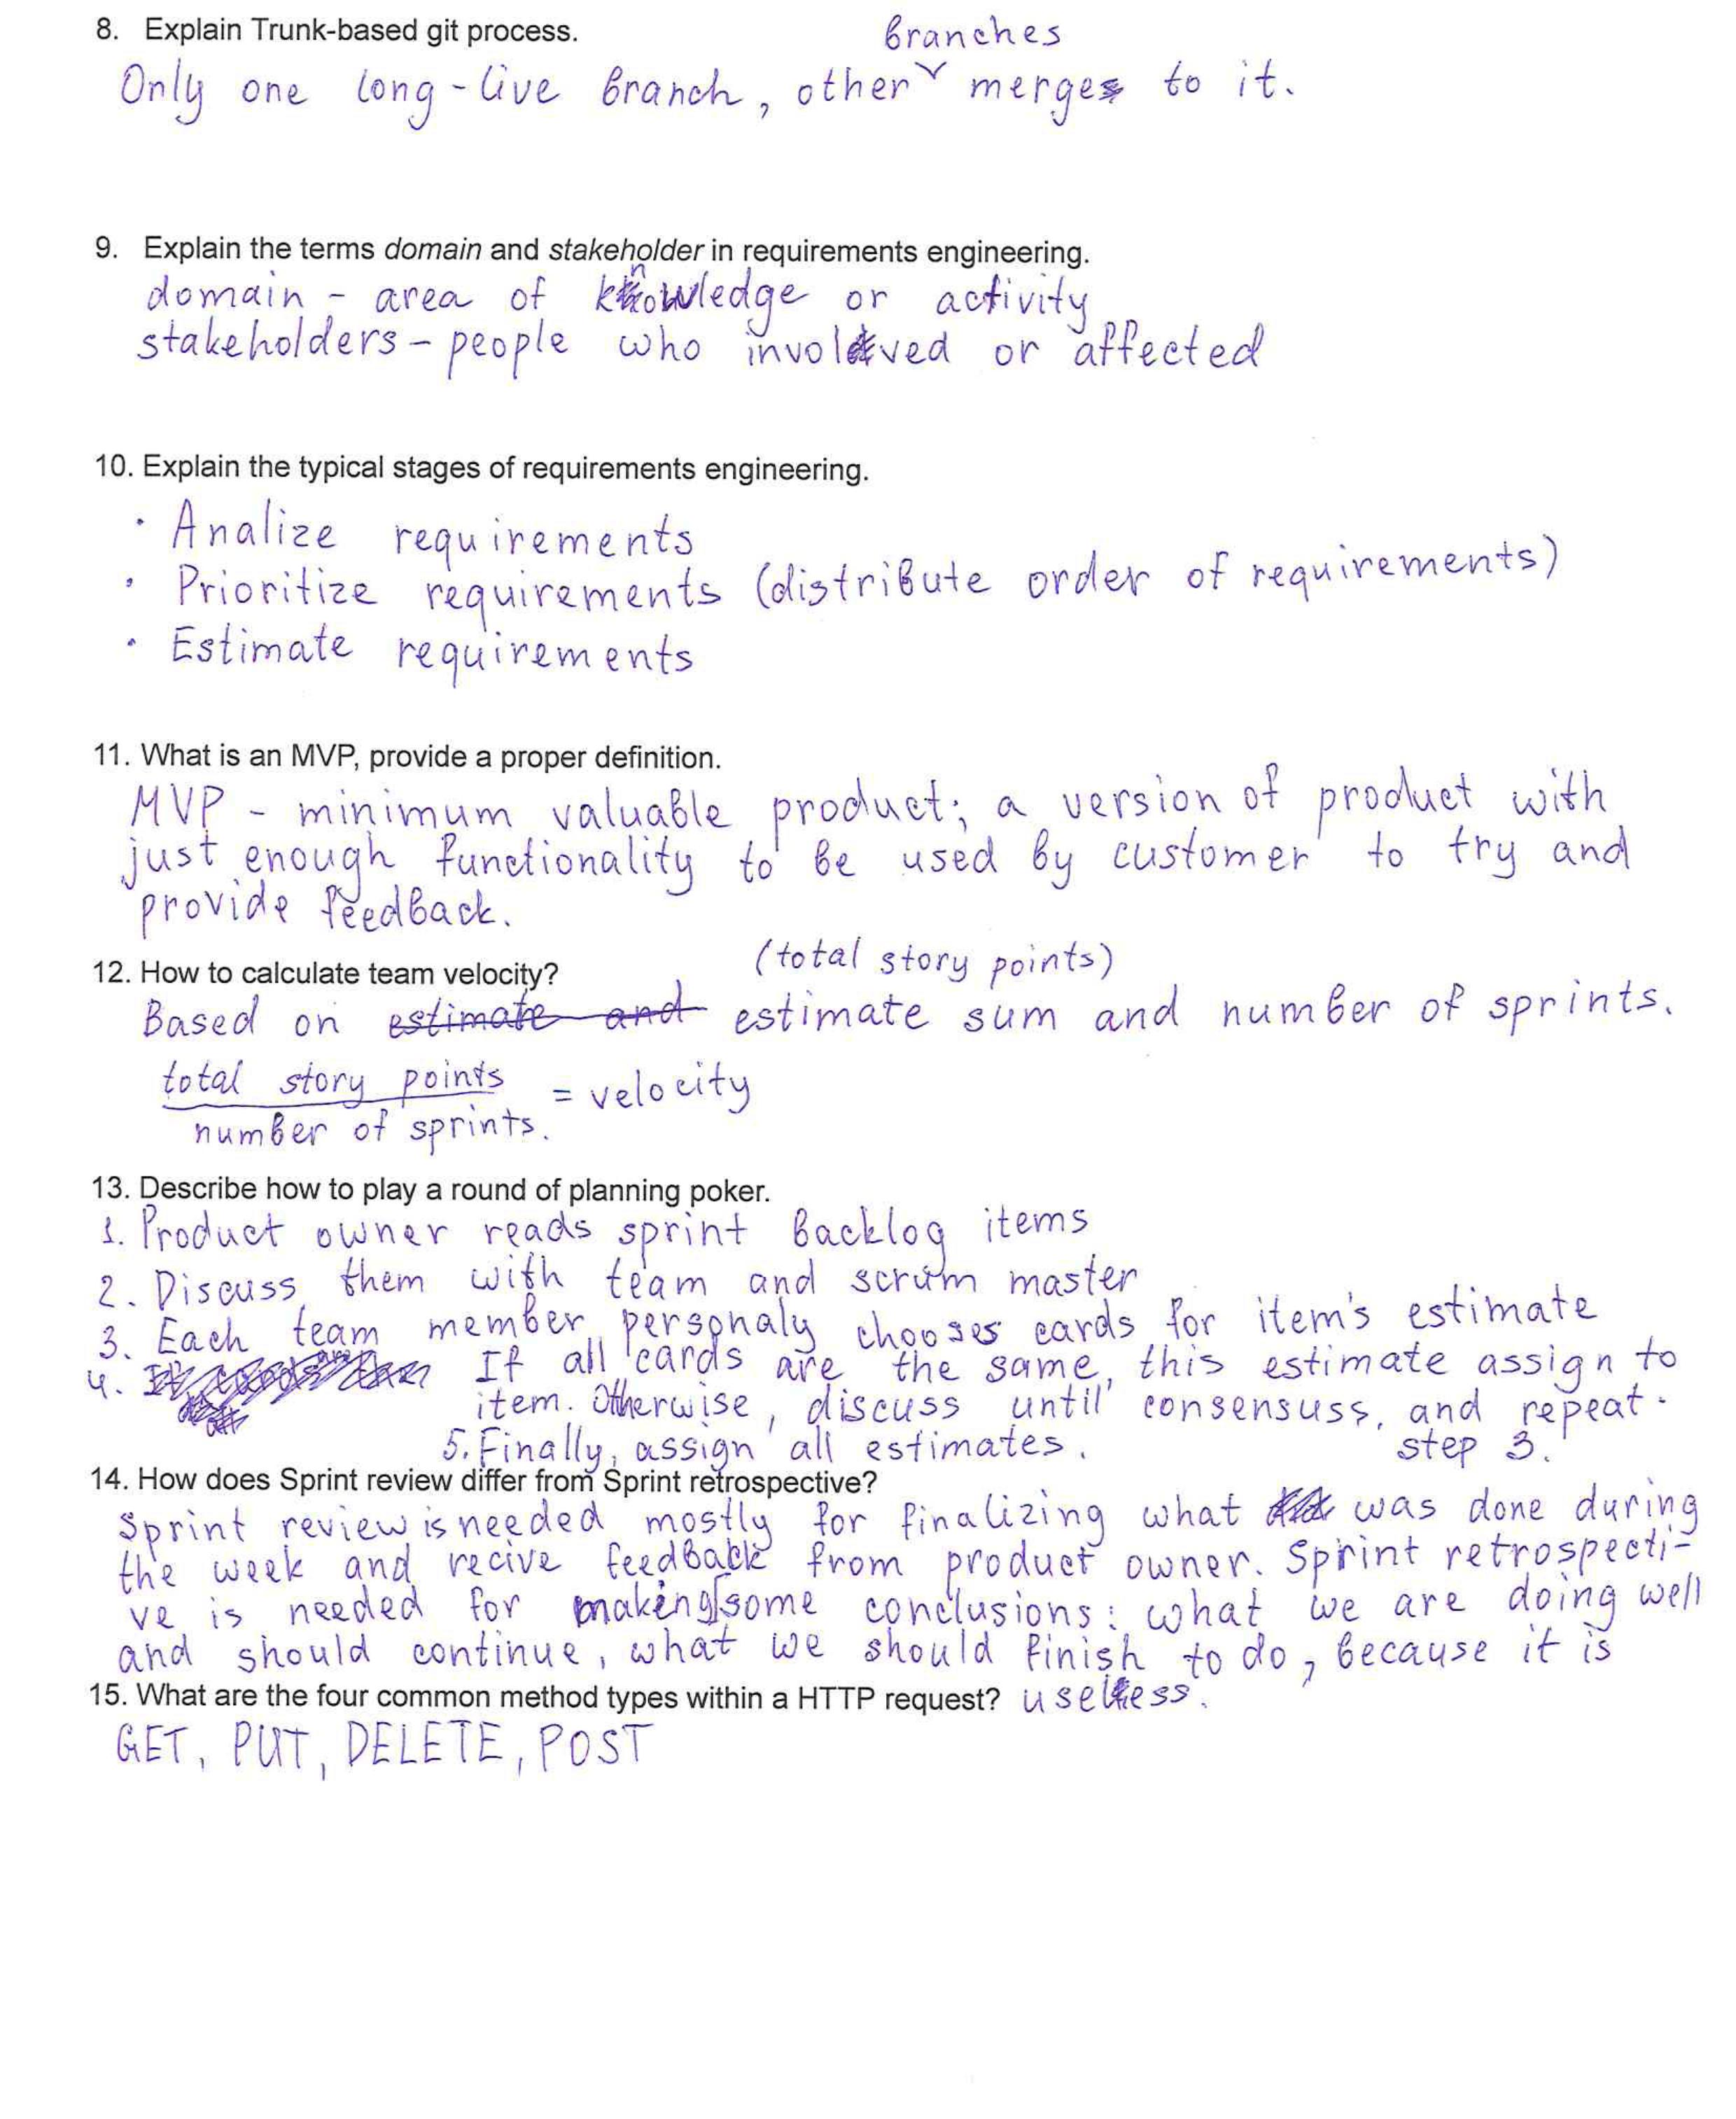 8. Explain Trunk-based git process.
branches
Only one long-live branch, other merges to it.
9. Explain the terms domain and stakeholder in requirements engineering.
domain - area of knowledge or activity
stakeholders - people who involved or affected
10. Explain the typical stages of requirements engineering.
· Analize requirements
· Prioritize requirements (distribute order of requirements)
· Estimate requirements
11. What is an MVP, provide a proper definition.
MVP - minimum valuable product; a version of product with
just enough functionality to be used by customer to try and
provide feedback.
12. How to calculate team velocity?
(total story points)
Based on estimate and estimate sum and number of sprints.
total story points
= velocity
number of sprints.
13. Describe how to play a round of planning poker.
1. Product owner reads sprint backlog items
2. Discuss them with team and scrum master
3. Each team member personaly chooses cards for item's estimate
4. If all cards are the same, this estimate assign to
item. Otherwise, discuss until consensuss, and repeat.
step 3.
5. Finally, assign all estimates.
14. How does Sprint review differ from Sprint retrospective?
Sprint review is needed mostly for finalizing what was done during
the week and recive feedback from product owner. Sprint retrospecti-
ve is needed for making some conclusions: what we are doing well
and should continue, what we should finish to do, because it is
useless.
15. What are the four common method types within a HTTP request?
GET, PUT, DELETE, POST